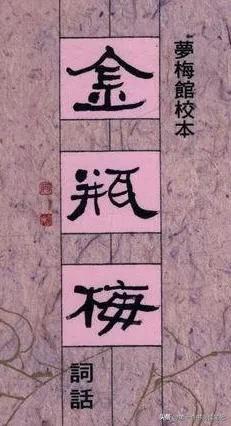 夢梅館校本
金
瓶
梅
詞話